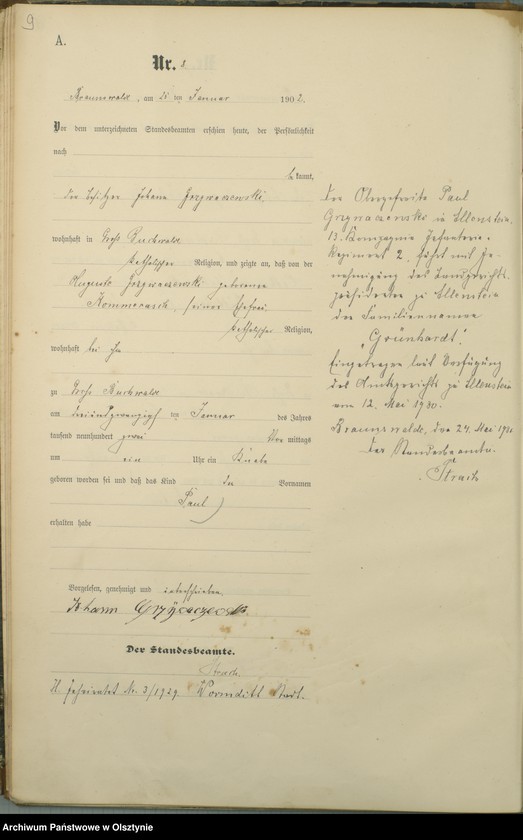 9
A.
Nr. 8
Braunswalde, am 25 ten Januar 1902.
Vor dem unterzeichneten Standesbeamten erschien heute, der Persönlichkeit
nach
bekannt,
der Johann Grzywaczewski
wohnhaft in Groß Buchwalde
katholischer Religion, und zeigte an, daß von der
Auguste Grzywaczewski geborene
seiner Ehefrau
katholischer Religion,
wohnhaft bei ihm
zu Groß Buchwalde
am dreiundzwanzigsten Januar des Jahres
tausend neunhundert zwei Vormittags
um ein Uhr ein Knabe
geboren worden sei und daß das Kind den Vornamen
Paul
erhalten habe
Vorgelesen, genehmigt und unterschrieben
Johann Grzywaczewski
Der Standesbeamte.
Strach
Nr. 3/1929 Wormditt Stadt.
Der Obergefreite Paul
Grzywaczewski in Allenstein,
13. Kompagnie Infanterie-
Regiment 2, führt mit Ge-
nehmigung des Landgerichts-
präsidenten zu Allenstein
den Familiennamen
"Grünhardt".
Eingetragen laut Verfügung
des Amtsgerichts zu Allenstein
vom 12. Mai 1930.
Braunswalde, den 24. Mai 1930
Der Standesbeamte.
Strach
Archiwum Państwowe w Olsztynie